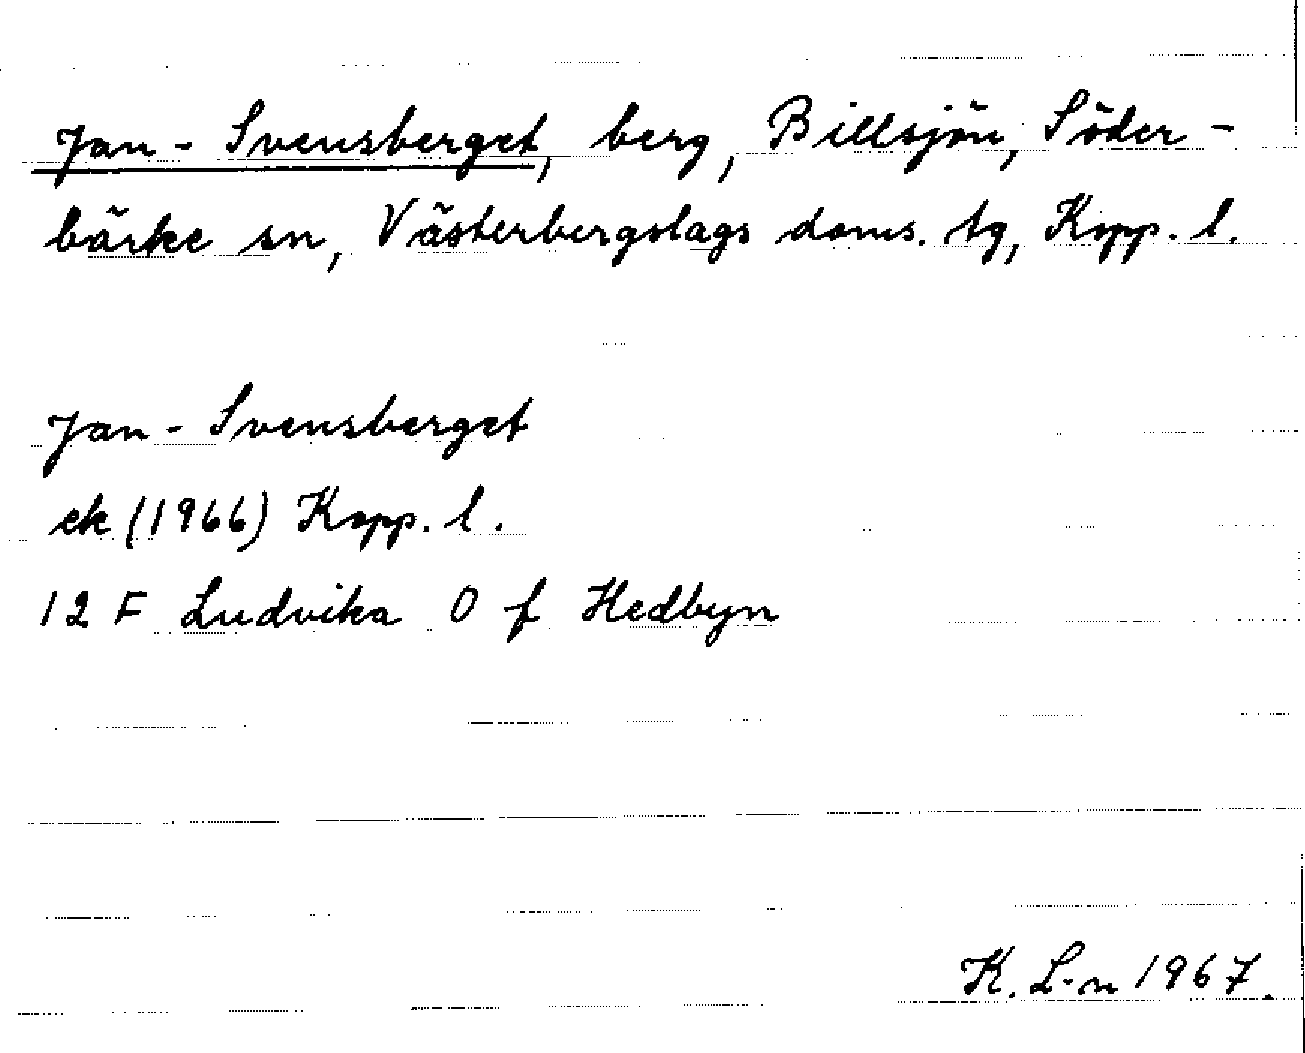 Jan-Svensberget, berg, Billsjön, Söder-
bärke sn, Västerbergslags doms. tg, Kopp. l.
Jan-Svensberget
ek (1966) Kopp. l.
12 F Ludvika 0 f Hedbyn
K. L-n 1967.